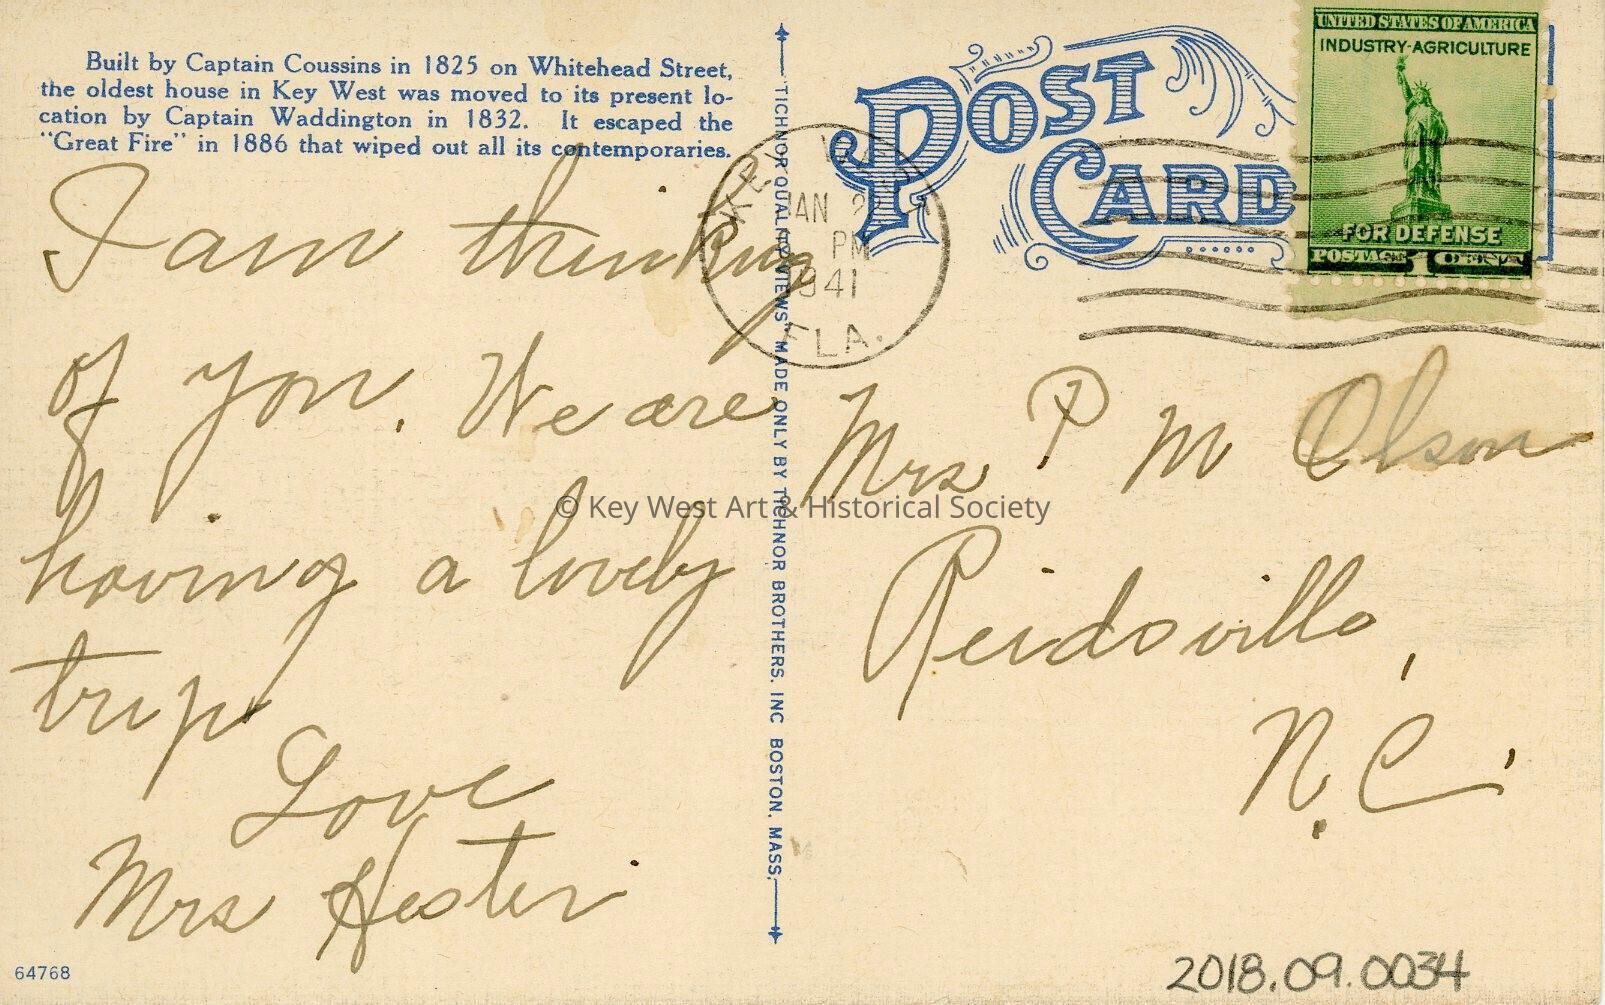 Built by Captain Coussins in 1825 on Whitehead Street,
the oldest house in Key West was moved to its present lo-
cation by Captain Waddington in 1832. It escaped the
"Great Fire" in 1886 that wiped out all its contemporaries.
I am thinking
of you. We are
having a lovely
trip
Love
Mrs Hester
64768
TICHNOR QUALITY VIEWS" MADE ONLY BY TICHNOR BROTHERS. INC BOSTON. MASS.
POST
CARD
KEY WEST
JAN
PM
1941
FLA.
UNITED STATES OF AMERICA
INDUSTRY-AGRICULTURE
FOR DEFENSE
POSTAGE 1 CENT
Mrs P M Olson
Reidsville,
N.C.
© Key West Art & Historical Society
2018.09.0034